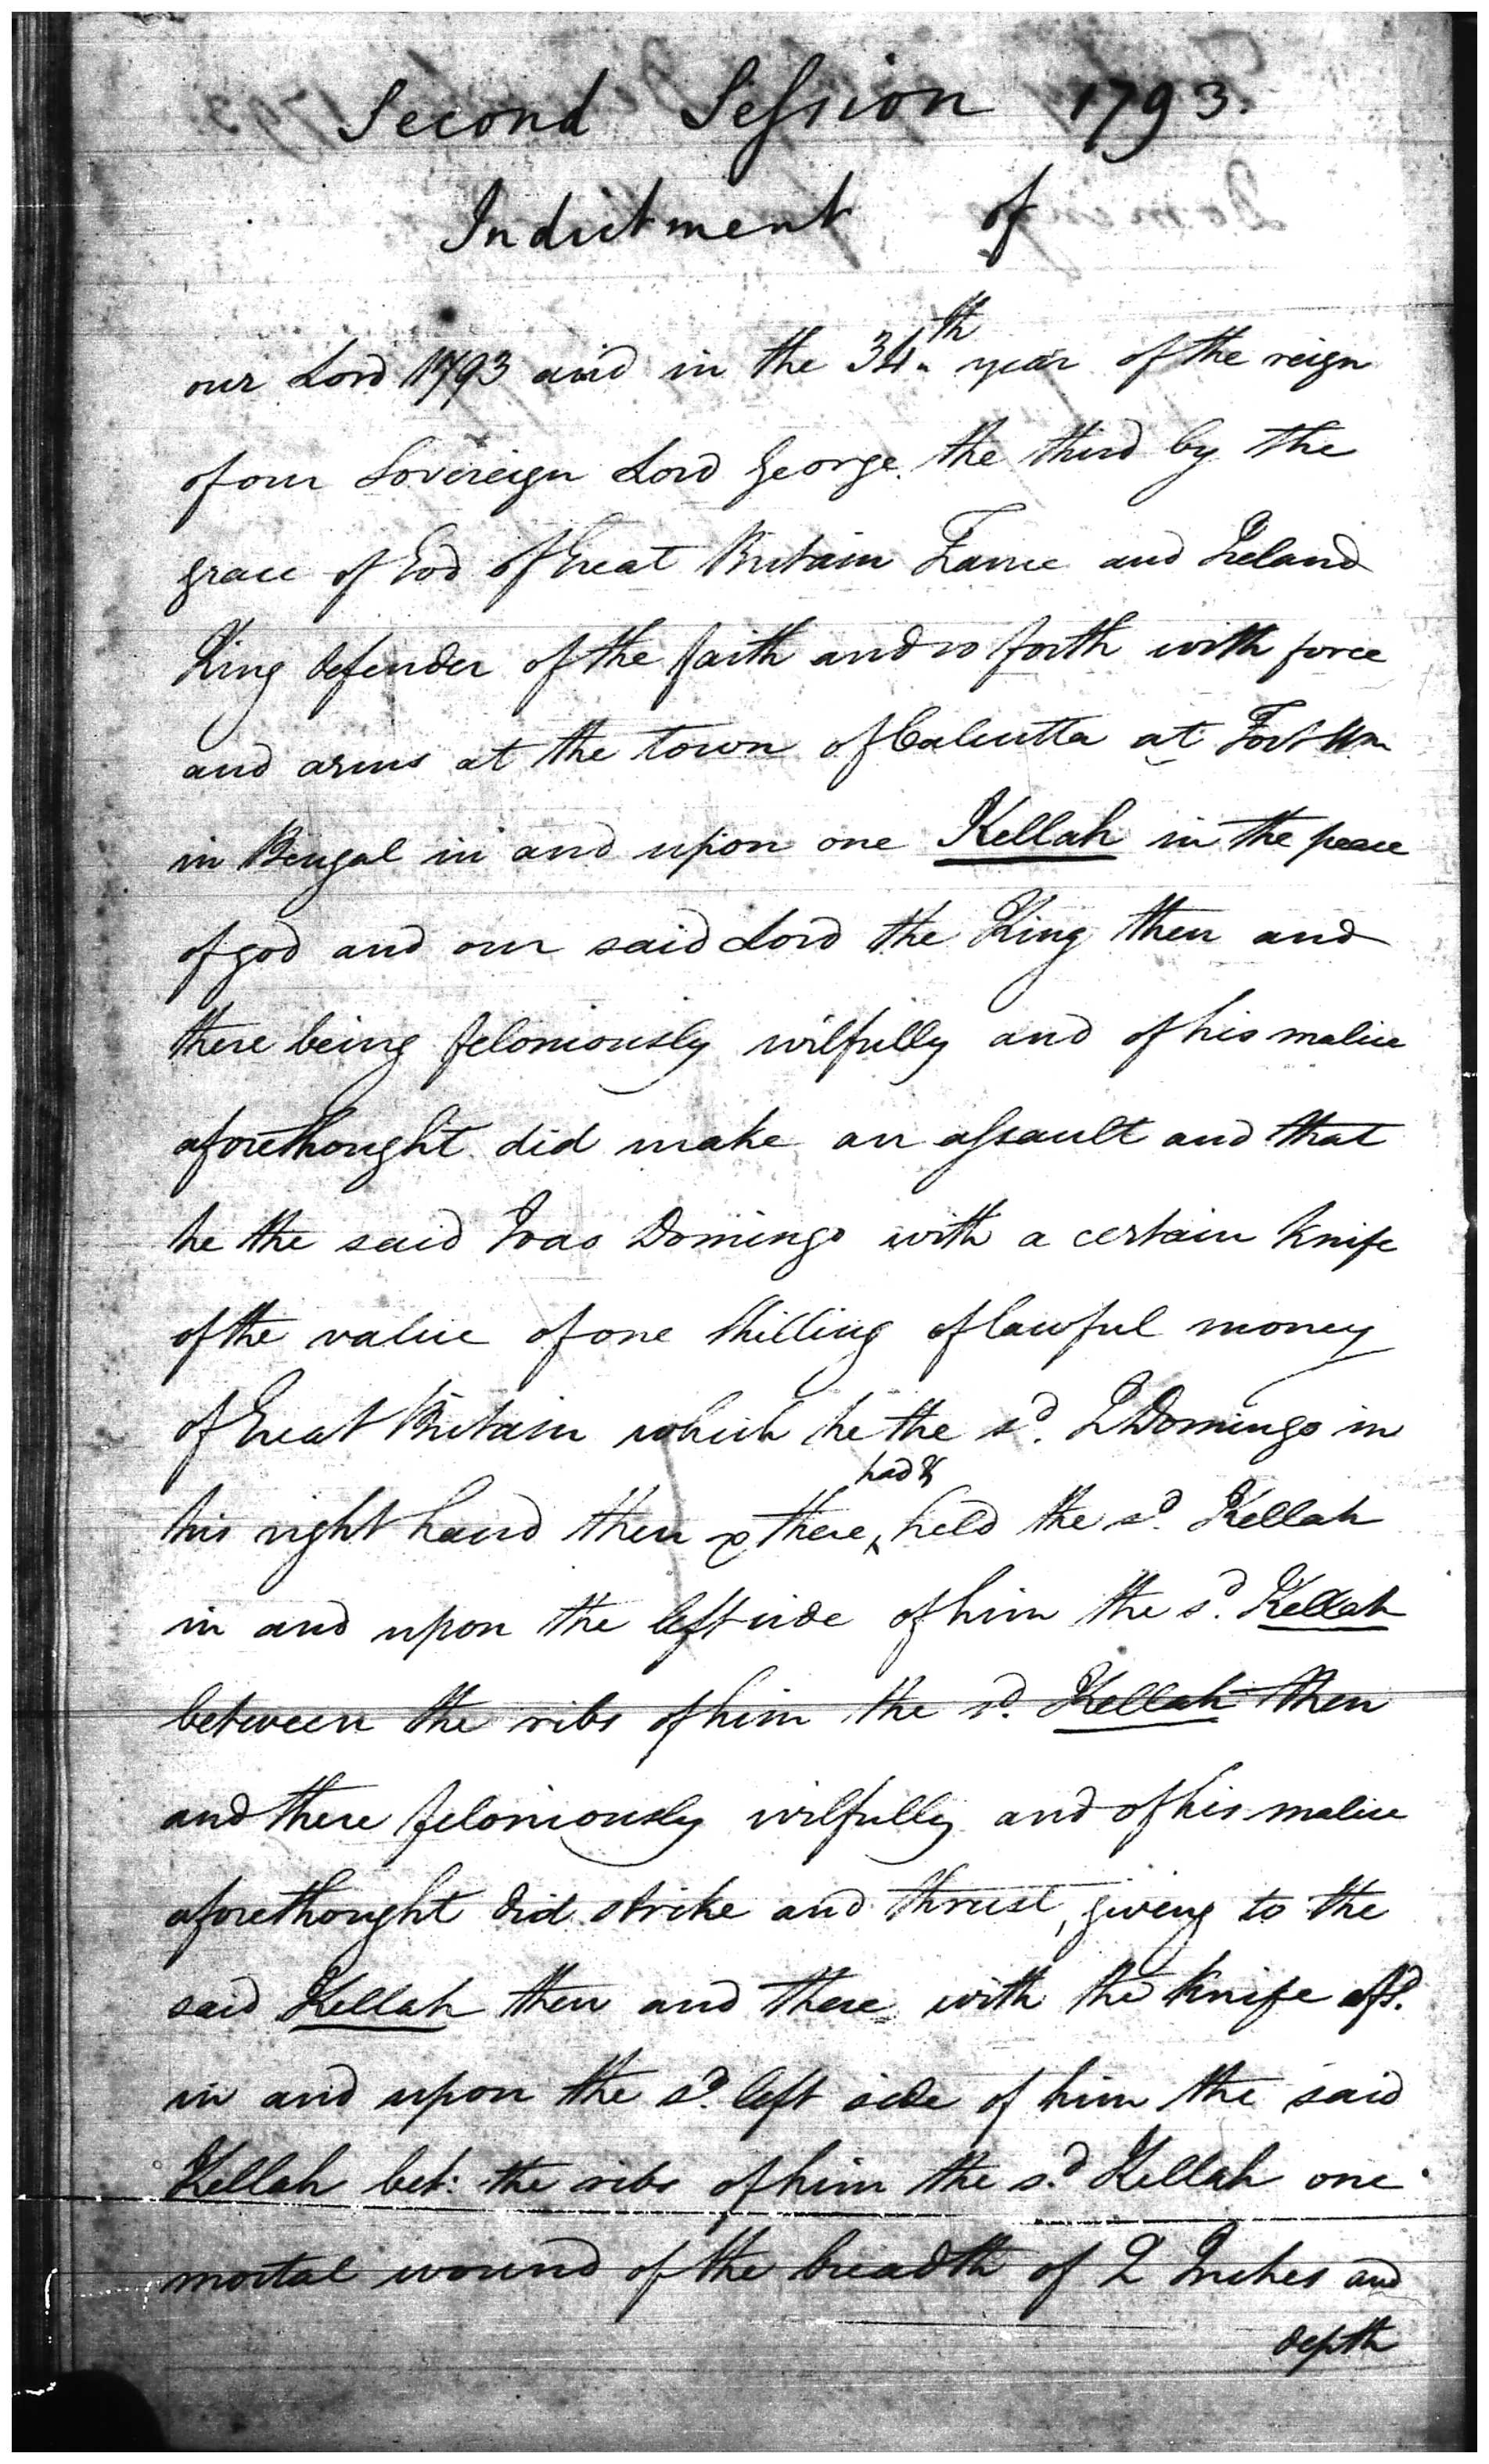 Second Session 1793.
Indictment of
our Lord 1793 and in the 34th year of the reign
of our Sovereign Lord George the third by the
grace of God of Great Britain France and Ireland
King defender of the faith and so forth with force
and arms at the town of Calcutta at Fort Wm
in Bengal in and upon one Kellah in the peace
of god and our said Lord the King then and
there being feloniously wilfully and of his malice
aforethought did make an assault and that
he the said Joao Domingo with a certain knife
of the value of one Shilling of lawful money
of Great Britain which he the sd. Domingo in
had &
his right hand then & there ‸ held the sd. Kellah
in and upon the left side of him the sd. Kellah
between the ribs of him the sd. Kellah then
and there feloniously wilfully and of his malice
aforethought did strike and thrust, giving to the
said Kellah then and there with the knife afsd.
in and upon the sd. left side of him the said
Kellah bet: the ribs of him the sd. Kellah one
mortal wound of the breadth of 2 Inches and
depth